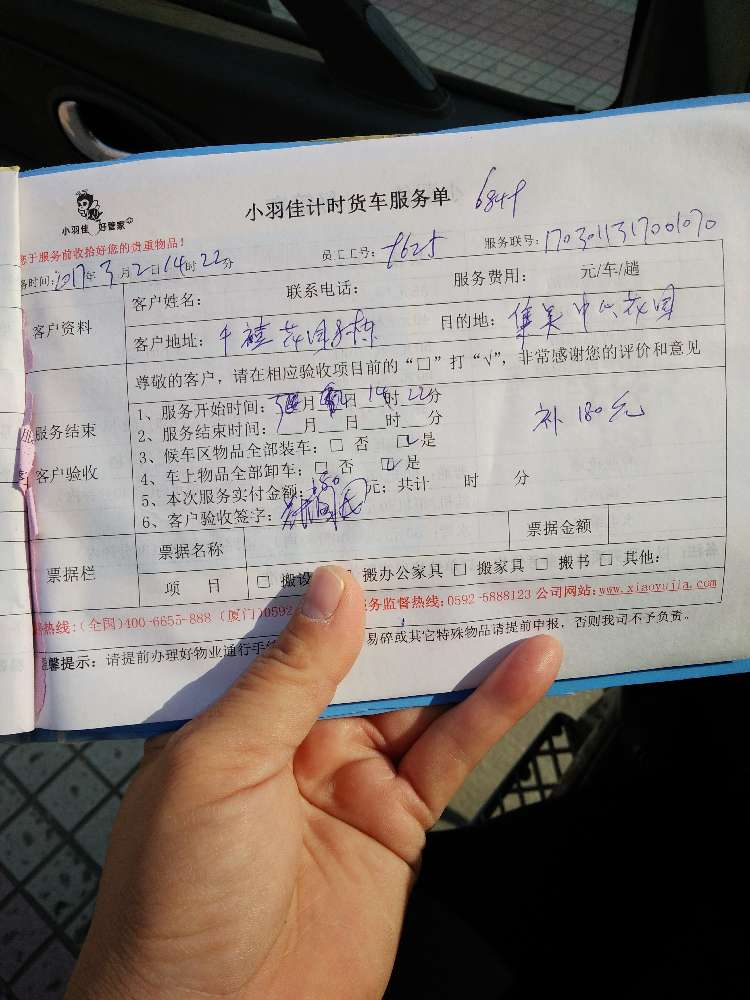 小羽佳 好管家
小羽佳计时货车服务单 6849
您于服务前收拾好您的贵重物品！
务时间：2017年3月2日14时22分 员工工号：8625 服务联号：1703011317001070
客户资料 客户姓名： 联系电话： 服务费用： 元/车/趟
客户地址：千禧花园8栋 目的地：集美中心花园
尊敬的客户，请在相应验收项目前的“□”打“√”，非常感谢您的评价和意见
服务结束
客户验收
1、服务开始时间：月日14时22分
2、服务结束时间：月日时分 补180元
3、候车区物品全部装车：□ 否 ☑ 是
4、车上物品全部卸车：□ 否 ☑ 是
5、本次服务实付金额：180元；共计 时 分
6、客户验收签字：
票据栏 票据名称 票据金额
项 目 □ 搬设 搬办公家具 □ 搬家具 □ 搬书 □ 其他：
热线：(全国)400-6655-888 (厦门)0592 务监督热线：0592-5888123 公司网站：www.xiaoyujia.com
馨提示：请提前办理好物业通行手 易碎或其它特殊物品请提前申报，否则我司不予负责。